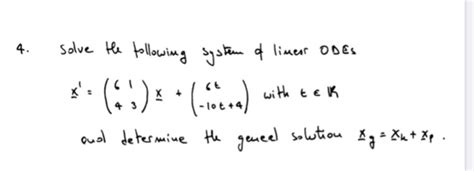 4. Solve the following system of linear ODEs
x' = ( 6 1 ) x + ( 6t ) with t ∈ ℝ
( 4 3 ) ( -10t+4 )
and determine the general solution x_g = x_h + x_p .